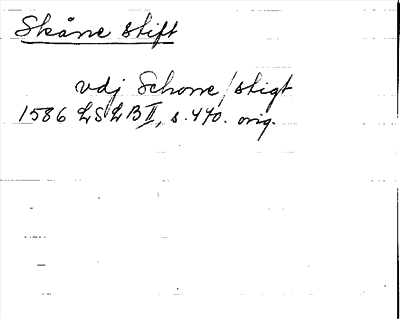 Skåne stift
vdj Schone / stigt
1586 LSLB II, s. 440. orig.